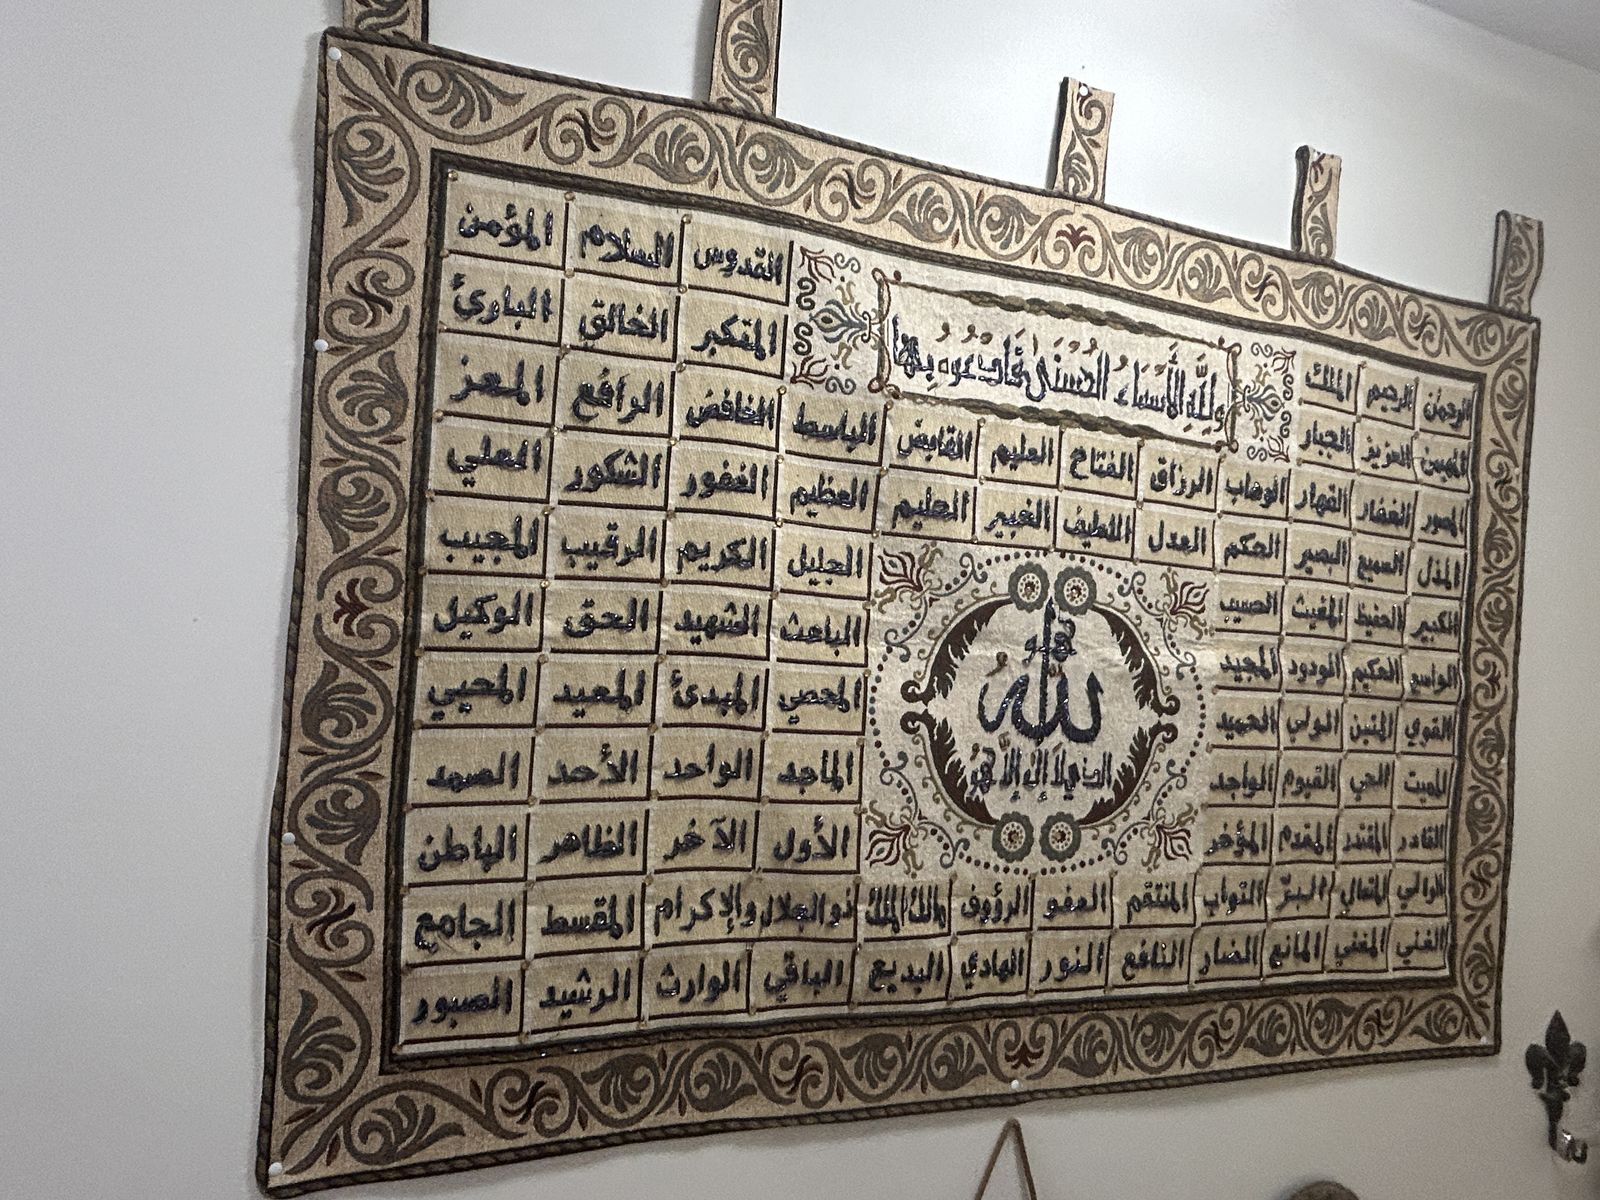 ولِلَّهِ الأَسْمَاءُ الحُسْنَىٰ فَادْعُوهُ بِهَا
الرحمن الرحيم الملك القدوس السلام المؤمن
المهيمن العزيز الجبار المتكبر الخالق البارئ
المصور الغفار القهار الوهاب الرزاق الفتاح العليم القابض الباسط الخافض الرافع المعز
المذل السميع البصير الحكم العدل اللطيف الخبير الحليم العظيم الغفور الشكور العلي
الكبير الحفيظ المغيث الحسيب الجليل الكريم الرقيب المجيب
الواسع الحكيم الودود المجيد الباعث الشهيد الحق الوكيل
القوي المتين الولي الحميد المحصي المبدئ المعيد المحيي
المميت الحي القيوم الواجد الماجد الواحد الأحد الصمد
القادر المقتدر المقدم المؤخر الأول الآخر الظاهر الباطن
هو
اللهُ
الذي لا إله إلا هو
الوالي المتعالي البرّ التواب المنتقم العفو الرؤوف مالك الملك ذو الجلال والإكرام المقسط الجامع
الغني المغني المانع الضار النافع النور الهادي البديع الباقي الوارث الرشيد الصبور